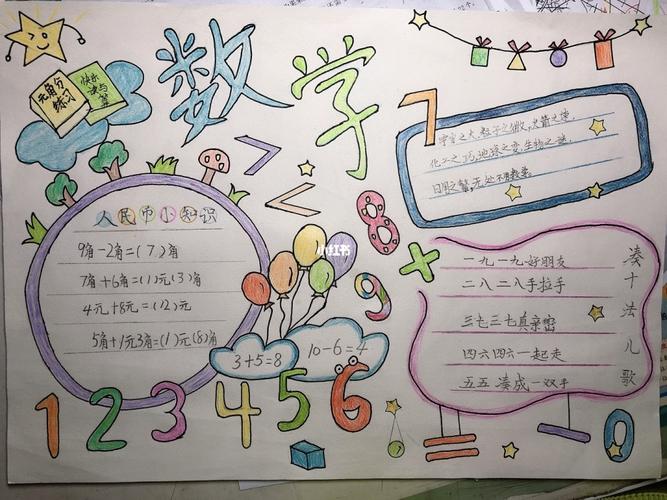 数学
元角分
练习
快乐
读与算
人民币小知识
9角-2角=(7)角
7角+6角=(1)元(3)角
4元+8元=(12)元
5角+1元3角=(1)元(8)角
>
<
7
宇宙之大,粒子之微,火箭之速,
化工之巧,地球之变,生物之谜,
日用之繁,无处不用数学。
8
9
+
小红书
3+5=8
10-6=4
凑十法儿歌
一九一九好朋友
二八二八手拉手
三七三七真亲密
四六四六一起走
五五凑成一双手
1 2 3 4 5 6
=
-
0